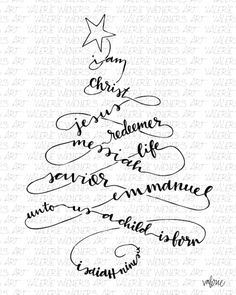 i am
Christ
jesus
redeemer
messiah life
savior emmanuel
unto us a child is born
isaiah nine six
valerie